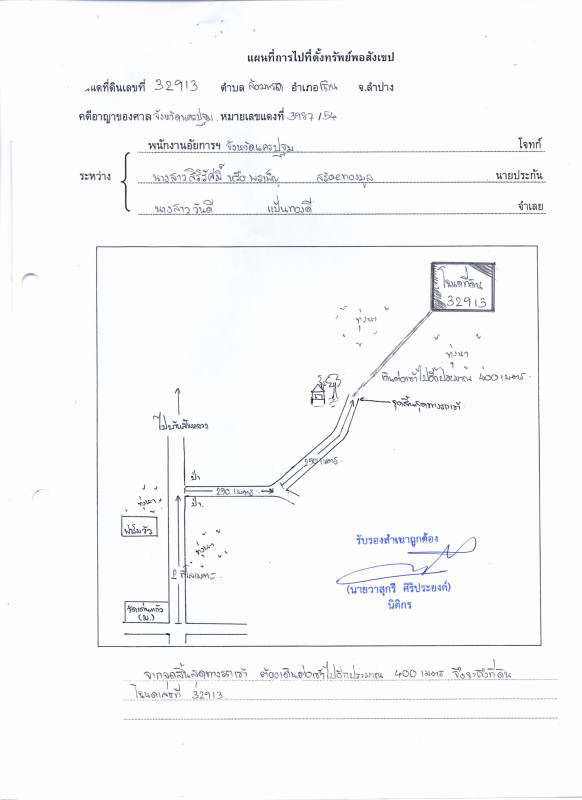 แผนที่การไปที่ตั้งทรัพย์พอสังเขป
โฉนดที่ดินเลขที่ 32913 ตำบล อำเภอเถิน จ.ลำปาง
คดีอาญาของศาล จังหวัดนครปฐม หมายเลขแดงที่ 3987/54
พนักงานอัยการฯ จังหวัดนครปฐม โจทก์
ระหว่าง
นางสาวสิริรัศมิ์ หรือ พรเพ็ญ นายประกัน
นางสาว วันดี แป้นทองดี จำเลย
โฉนดที่ดิน
32913
ทุ่งนา
ทุ่งนา
เดินต่อเข้าไปอีกประมาณ 400 เมตร
จุดสิ้นสุดทางรถเข้า
250 เมตร
ป่า
290 เมตร
ป่า
ทุ่งนา
ฟาร์มวัว
ทุ่งนา
2 กิโลเมตร
(ม.)
รับรองสำเนาถูกต้อง
(นายวาสุกรี ศิริประยงค์)
นิติกร
จากจุดสิ้นสุดทางรถเข้า ต้องเดินต่อเข้าไปอีกประมาณ 400 เมตร จึงจะถึงที่ดิน
โฉนดเลขที่ 32913